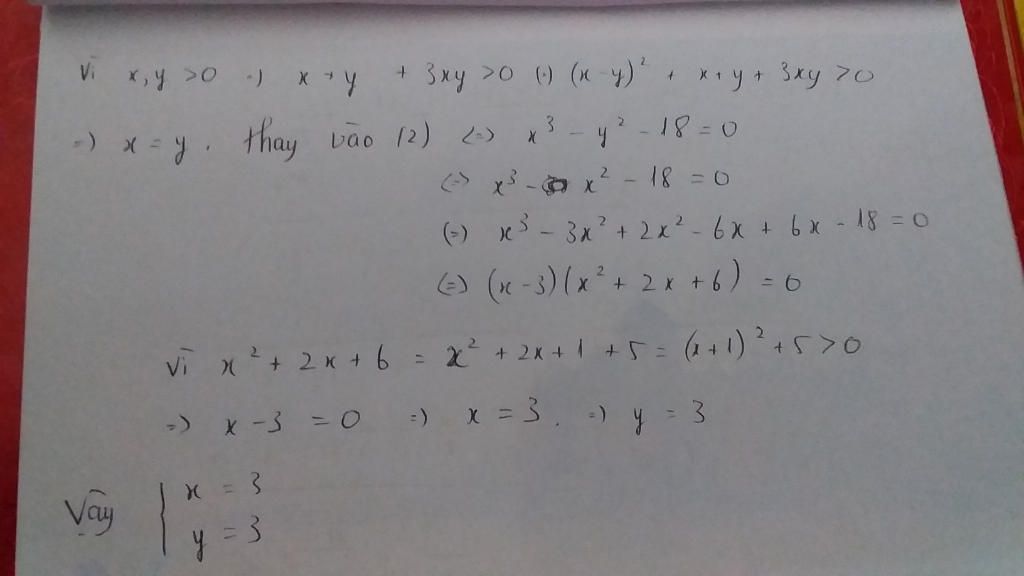 Vì x, y > 0 => x + y + 3xy > 0 (=) (x - y)² + x + y + 3xy > 0
=) x = y. Thay vào (2) <=> x³ - y² - 18 = 0
<=> x³ - x² - 18 = 0
(=) x³ - 3x² + 2x² - 6x + 6x - 18 = 0
(=) (x - 3)(x² + 2x + 6) = 0
Vì x² + 2x + 6 = x² + 2x + 1 + 5 = (x + 1)² + 5 > 0
=> x - 3 = 0 =) x = 3. =) y = 3
Vậy { x = 3
y = 3